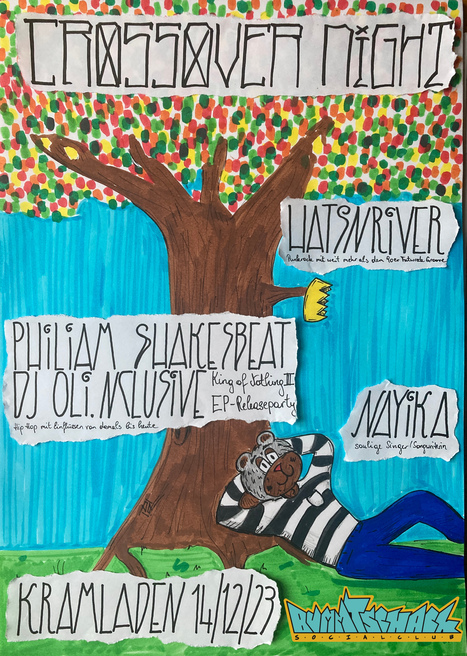 CROSSOVER NIGHT
HATSNRIVER
Punkrock mit weit mehr als dem 90er Fatwreck Groove
PHILIAM SHAKESBEAT
DJ OLI.NCLUSIVE
King of Nothing II
EP-Releaseparty
Hip Hop mit Einflüssen von damals bis heute
NAYKA
soulige Singer/Songwritrin
KRAMLADEN 14/12/23
RUMMTSCHACK
SOCIALCLUB